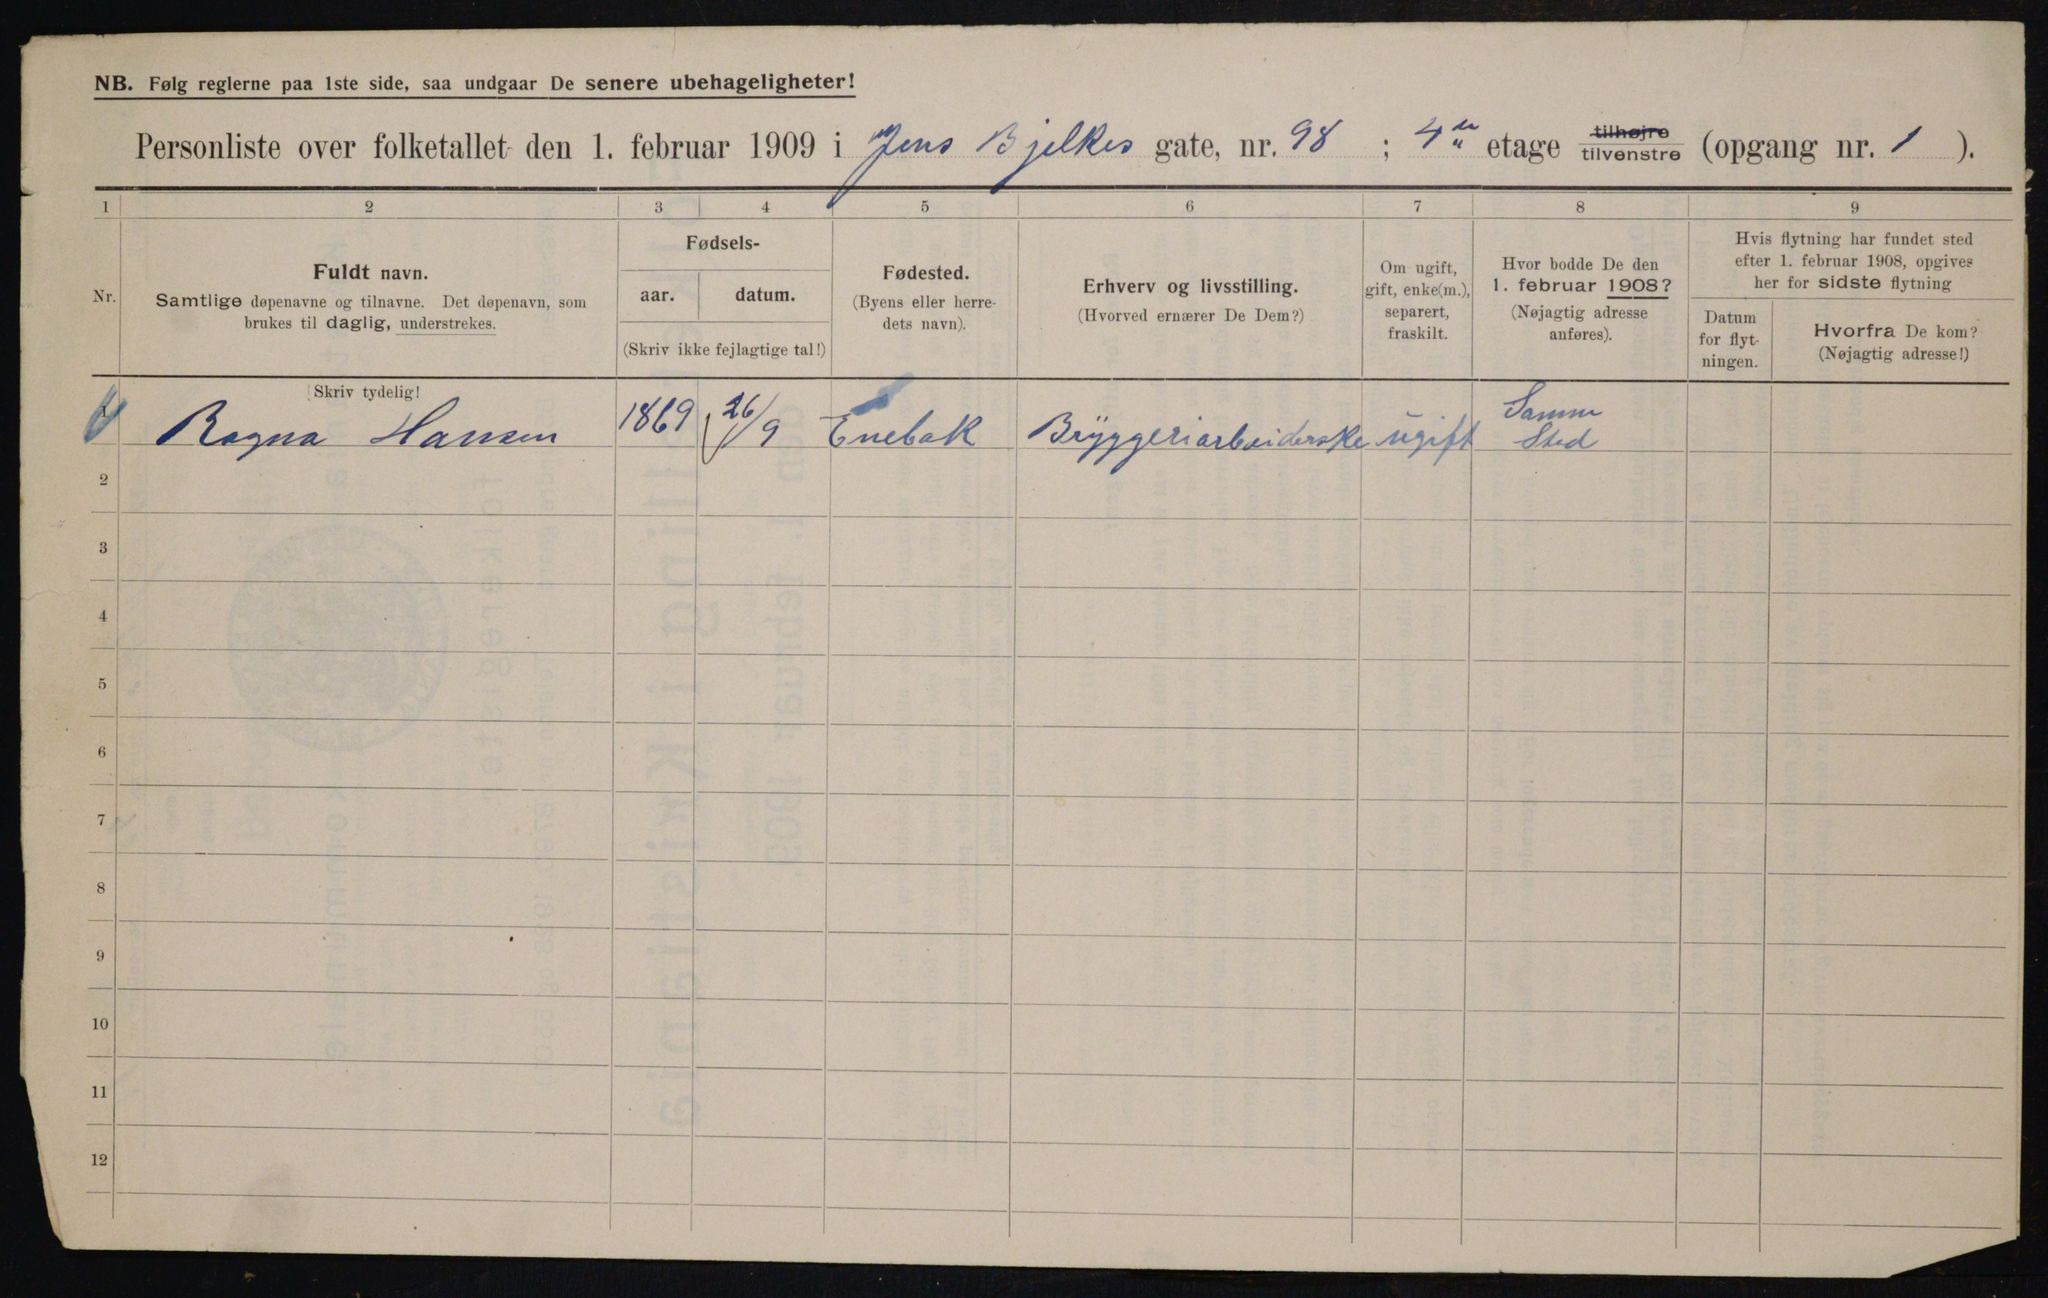 NB. Følg reglerne paa 1ste side, saa undgaar De senere ubehageligheter!
Personliste over folketallet den 1. februar 1909 i Jens Bjelkes gate, nr. 98 ; 4de etage tilhøjre tilvenstre (opgang nr. 1 ).
1 2 3 4 5 6 7 8 9
Nr.
Fuldt navn.
Samtlige døpenavne og tilnavne. Det døpenavn, som
brukes til daglig, understrekes.
Fødsels-
aar. datum.
(Skriv ikke fejlagtige tal!)
Fødested.
(Byens eller herre-
dets navn).
Erhverv og livsstilling.
(Hvorved ernærer De Dem?)
Om ugift,
gift, enke(m.),
separert,
fraskilt.
Hvor bodde De den
1. februar 1908?
(Nøjagtig adresse
anføres).
Hvis flytning har fundet sted
efter 1. februar 1908, opgives
her for sidste flytning
Datum
for flyt-
ningen.
Hvorfra De kom?
(Nøjagtig adresse!)
Skriv tydelig!
1 Ragna Hansen 1869 26/9 Enebak Brÿggeriarbeiderske ugift Samme
Sted
2
3
4
5
6
7
8
9
10
11
12